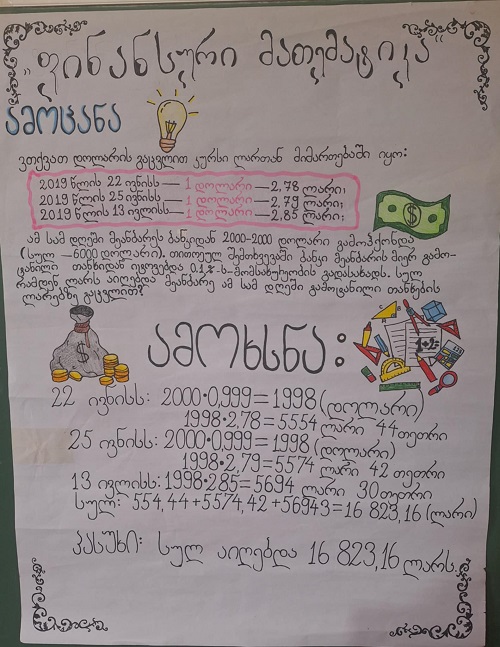 „ფინანსური მათემატიკა“
ამოცანა
ვთქვათ დოლარის გაცვლით კურსი ლართან მიმართებაში იყო:
2019 წლის 22 ივნისს — 1 დოლარი — 2,78 ლარი;
2019 წლის 25 ივნისს — 1 დოლარი — 2,79 ლარი;
2019 წლის 13 ივლისს — 1 დოლარი — 2,85 ლარი;
ამ სამ დღეში მეანბარეს ბანკიდან 2000-2000 დოლარი გამოჰქონდა
(სულ — 6000 დოლარი). თითოეულ შემთხვევაში ბანკი მეანბარის მიერ გამო-
ტანილი თანხიდან იტოვებდა 0.1%-ს-მომსახურების გადასახადს. სულ
რამდენ ლარს აიღებდა მეანბარე ამ სამ დღეში გამოტანილი თანხების
ლარებზე გაცვლით?
ამოხსნა:
1+2=
22 ივნისს: 2000·0,999=1998 (დოლარი)
1998·2,78=5554 ლარი 44 თეთრი
25 ივნისს: 2000·0,999=1998 (დოლარი)
1998·2,79=5574 ლარი 42 თეთრი
13 ივლისს: 1998·285=5694 ლარი 30 თეთრი
სულ: 554,44+5574,42+56943=16 823,16 (ლარი)
პასუხი: სულ აიღებდა 16 823,16 ლარს.